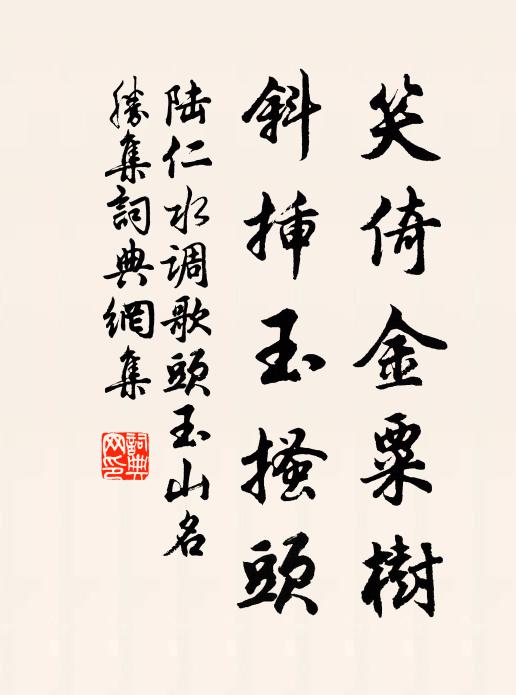 笑倚金粟樹
斜插玉搔頭
陆仁水调歌頭玉山名
勝集詞典網集
詞典
网印